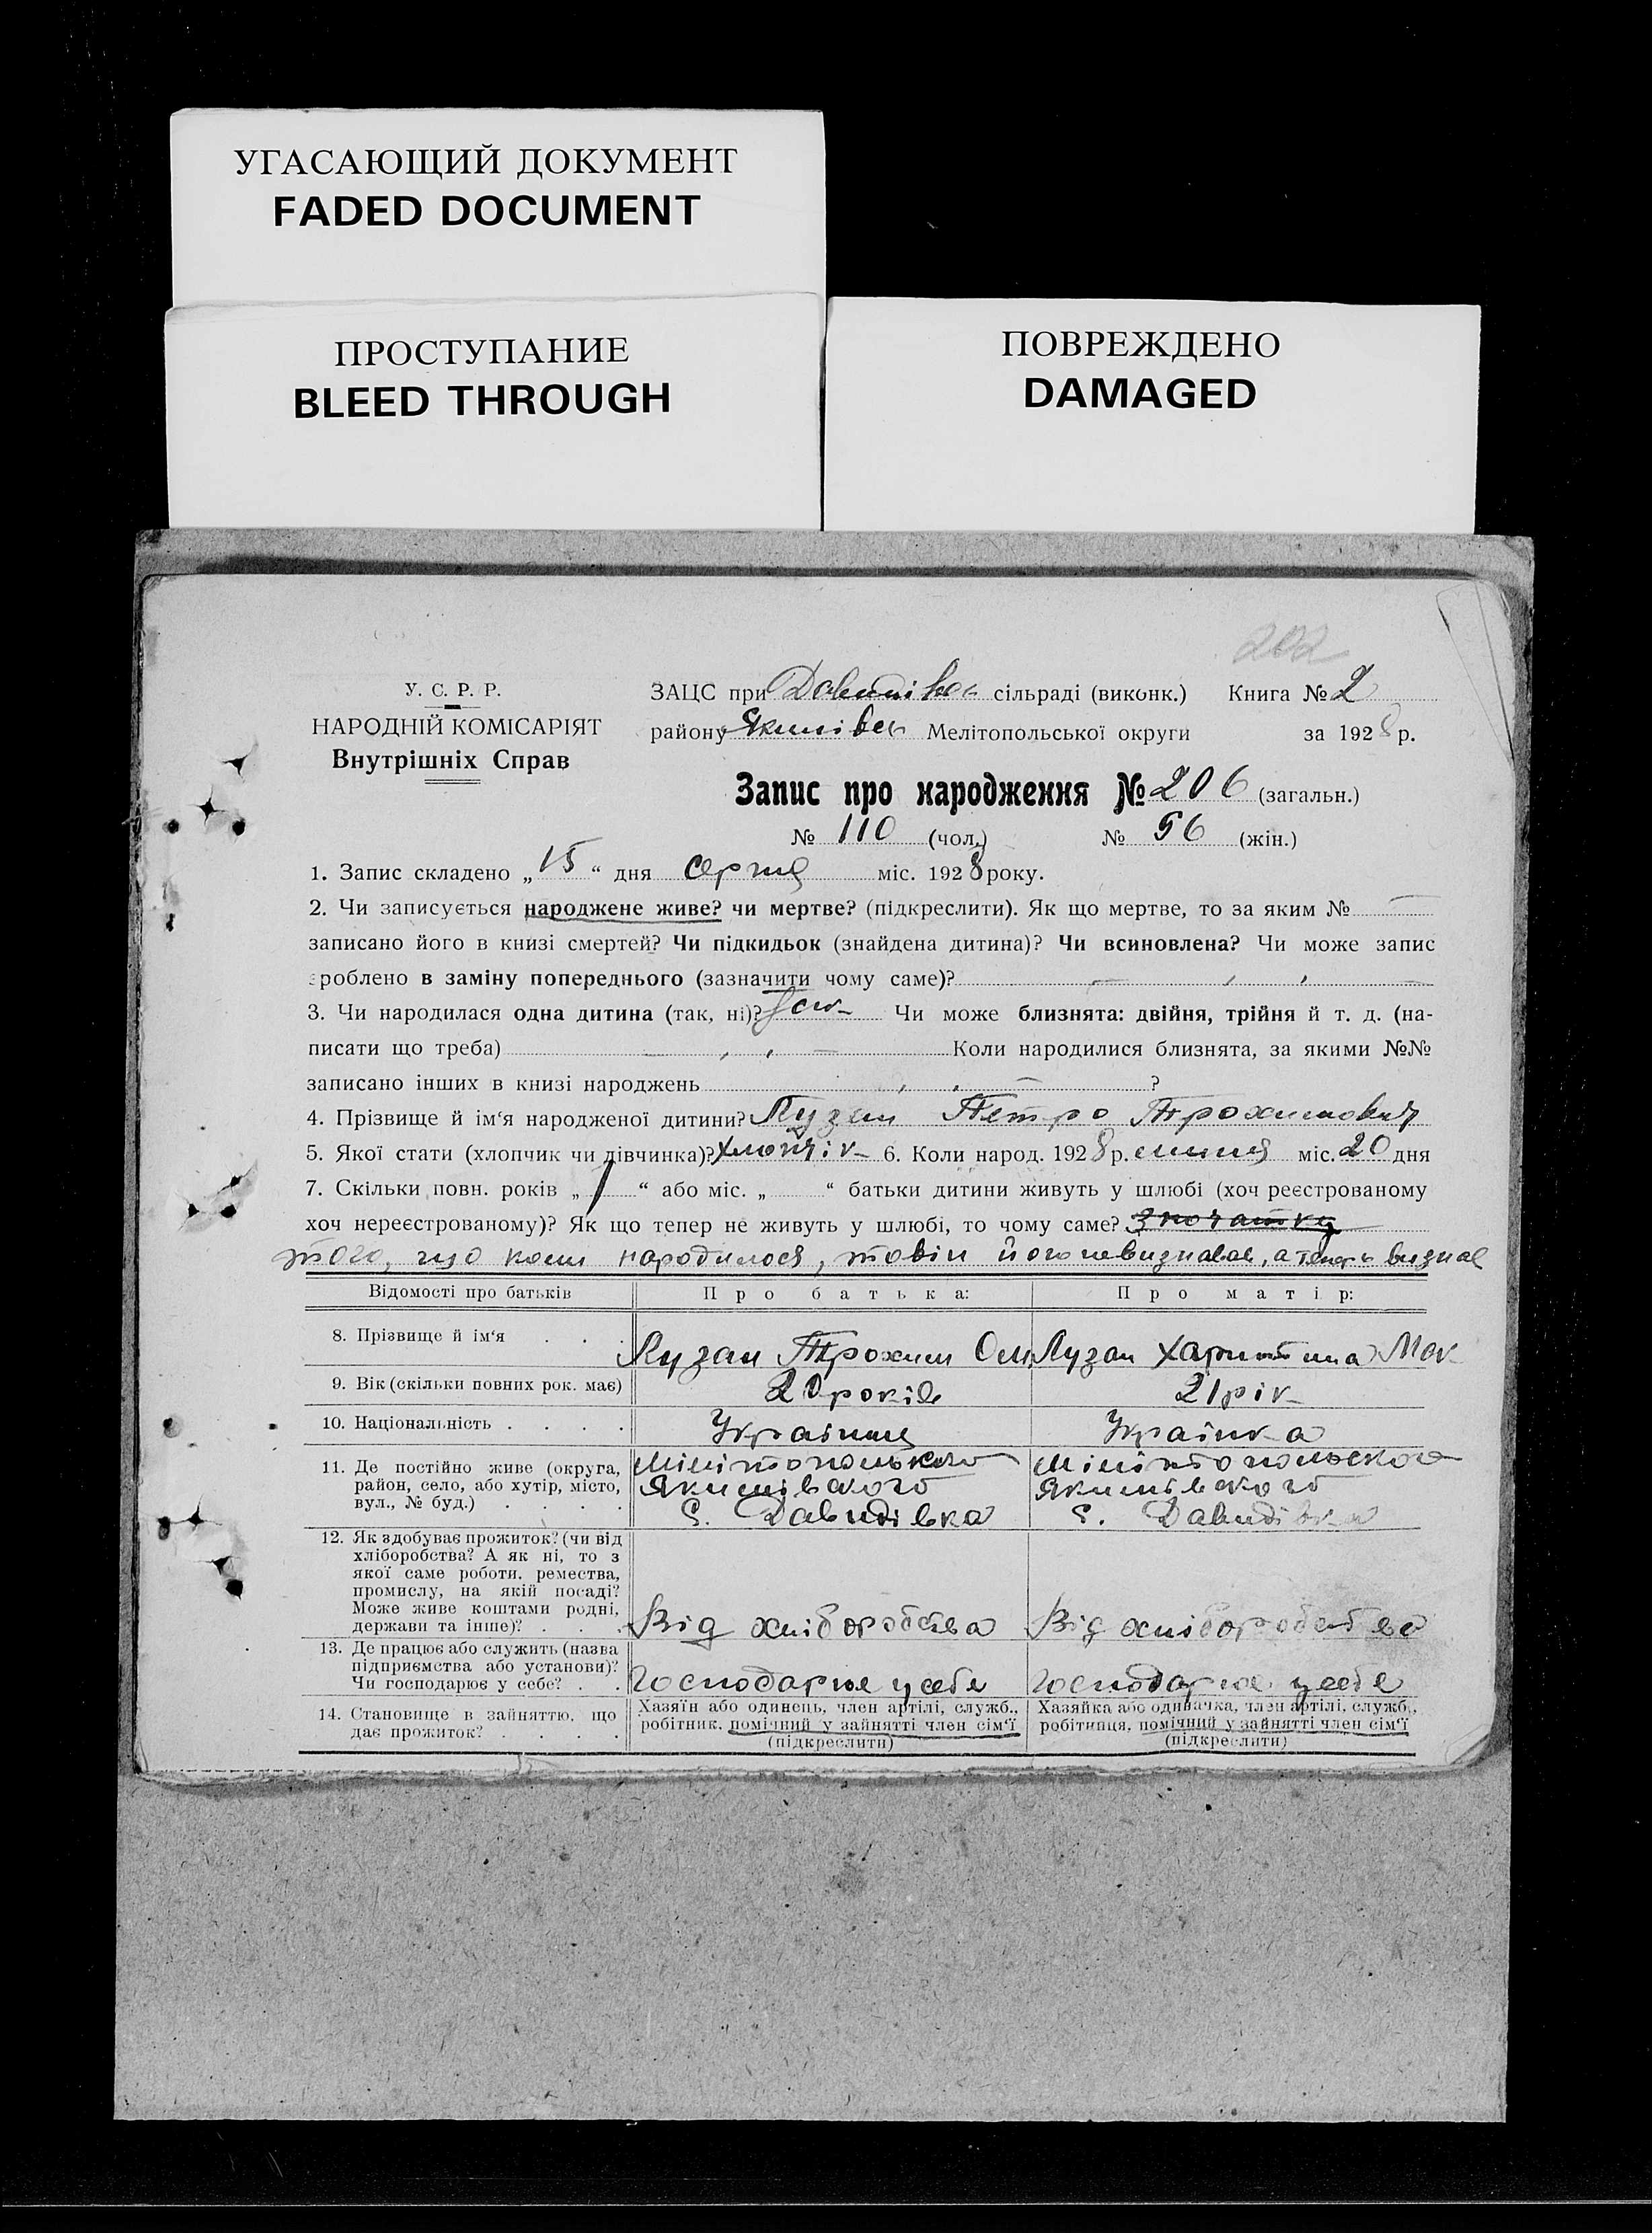 УГАСАЮЩИЙ ДОКУМЕНТ
FADED DOCUMENT
ПРОСТУПАНИЕ
BLEED THROUGH
ПОВРЕЖДЕНО
DAMAGED
202
У. С. Р. Р.
НАРОДНІЙ КОМІСАРІЯТ
Внутрішніх Справ
ЗАЦС при Давидівск сільраді (виконк.) Книга № 2
району Якимівск Мелітопольської округи за 1928 р.
Запис про народження № 206 (загальн.)
№ 110 (чол.) № 96 (жін.)
1. Запис складено „15“ дня серпня міс. 1928 року.
2. Чи записується народжене живе? чи мертве? (підкреслити). Як що мертве, то за яким № —
записано його в книзі смертей? Чи підкидьок (знайдена дитина)? Чи всиновлена? Чи може запис
зроблено в заміну попереднього (зазначити чому саме)?
3. Чи народилася одна дитина (так, ні)? Чи може близнята: двійня, трійня й т. д. (на-
писати що треба) Коли народилися близнята, за якими №№
записано інших в книзі народжень ?
4. Прізвище й ім‘я народженої дитини? Лузан Петро Трохимович
5. Якої стати (хлопчик чи дівчинка)? Хлопчік 6. Коли народ. 1928 р. липня міс. 20 дня
7. Скільки повн. років „ “ або міс. „ “ батьки дитини живуть у шлюбі (хоч реєстрованому
хоч нереєстрованому)? Як що тепер не живуть у шлюбі, то чому саме? З початку
того, що коли народилося, то він його невизнавав, а тепер визнав
Відомості про батьків Про батька: Про матір:
8. Прізвище й ім‘я . . . Лузан Трохим Ом Лузан Харитина Мак
9. Вік (скільки повних рок. має) 20 років 21 рік
10. Національність . . . . Українец Українка
11. Де постійно живе (округа, Мілітопольского Мілітопольского
район, село, або хутір, місто, Якимівского Якимівского
вул., № буд.) . . . . С. Давидівка С. Давидівка
12. Як здобуває прожиток? (чи від
хліборобства? А як ні, то з
якої саме роботи, ремества,
промислу, на якій посаді?
Може живе коштами родні,
держави та інше)? . . . Від хліборобства Від хліборобства
13. Де працює або служить (назва
підприємства або установи)?
Чи господарює у себе? . . Господарює у себе Господарює у себе
14. Становище в зайняттю, що
дає прожиток? . . . .
Хазяїн або одинець, член артілі, служб.,
робітник, помічний у зайнятті член сім‘ї
(підкреслити)
Хазяйка або одиначка, член артілі, служб.,
робітниця, помічний у зайнятті член сім‘ї
(підкреслити)